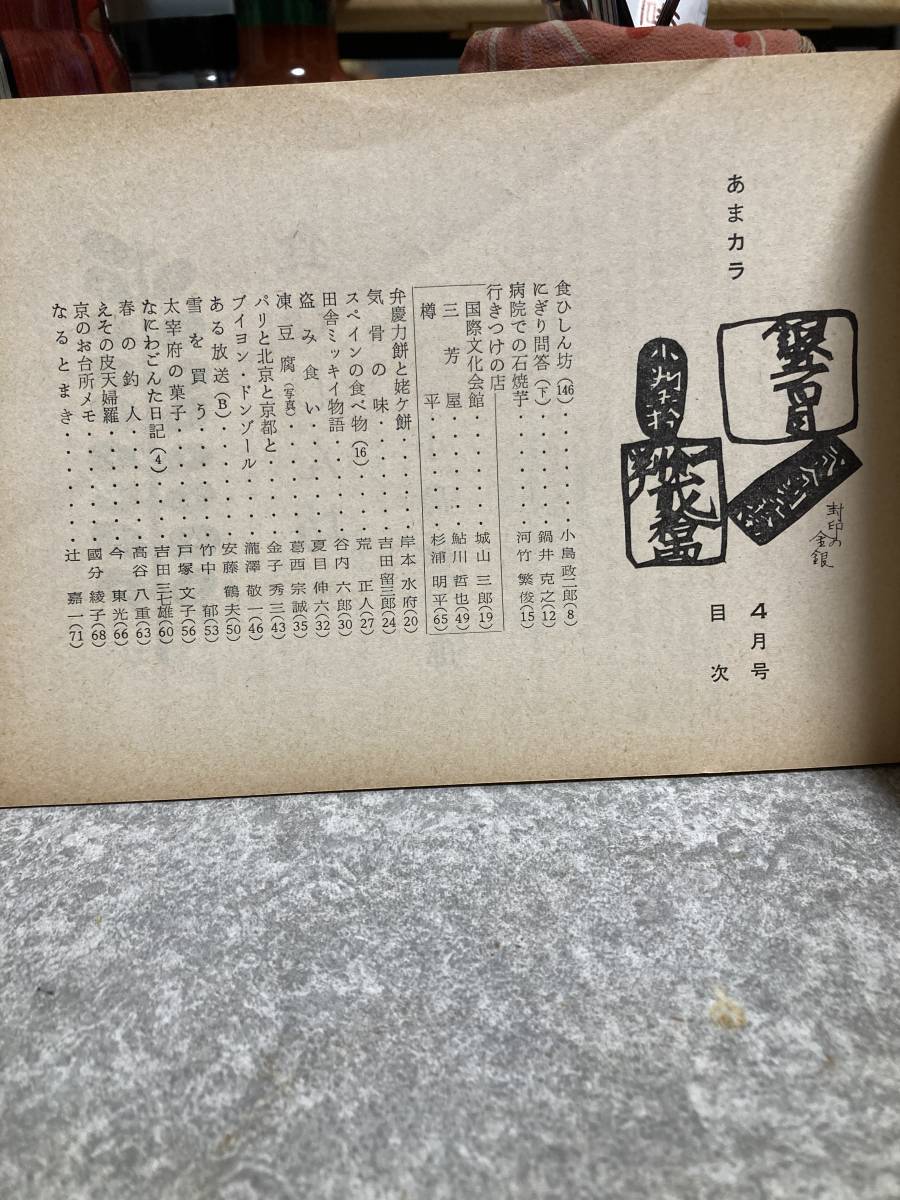 あまカラ
4月号
目次
封印の
金銀
食ひしん坊(146)・・・・・小島政二郎(8)
にぎり問答(下)・・・・・鍋井克之(12)
病院での石焼芋・・・・・河竹繁俊(15)
行きつけの店
国際文化会館・・・・・城山三郎(19)
三芳屋・・・・・鮎川哲也(49)
樽平・・・・・杉浦明平(65)
弁慶力餅と姥ケ餅・・・・・岸本水府(20)
気骨の味・・・・・吉田留三郎(24)
スペインの食べ物(16)・・・・荒正人(27)
田舎ミッキイ物語・・・・・谷内六郎(30)
盗み食い・・・・・夏目伸六(32)
凍豆腐(写真)・・・・・葛西宗誠(35)
パリと北京と京都と・・・・金子秀三(43)
ブイヨン・ドンゾール・・・瀧澤敬一(46)
ある放送(B)・・・・・安藤鶴夫(50)
雪を買う・・・・・竹中郁(53)
太宰府の菓子・・・・・戸塚文子(56)
なにわごんた日記(4)・・・吉田三七雄(60)
春の釣人・・・・・高谷八重(63)
えその皮天婦羅・・・・・今東光(66)
京のお台所メモ・・・・・國分綾子(68)
なるとまき・・・・・辻嘉一(71)